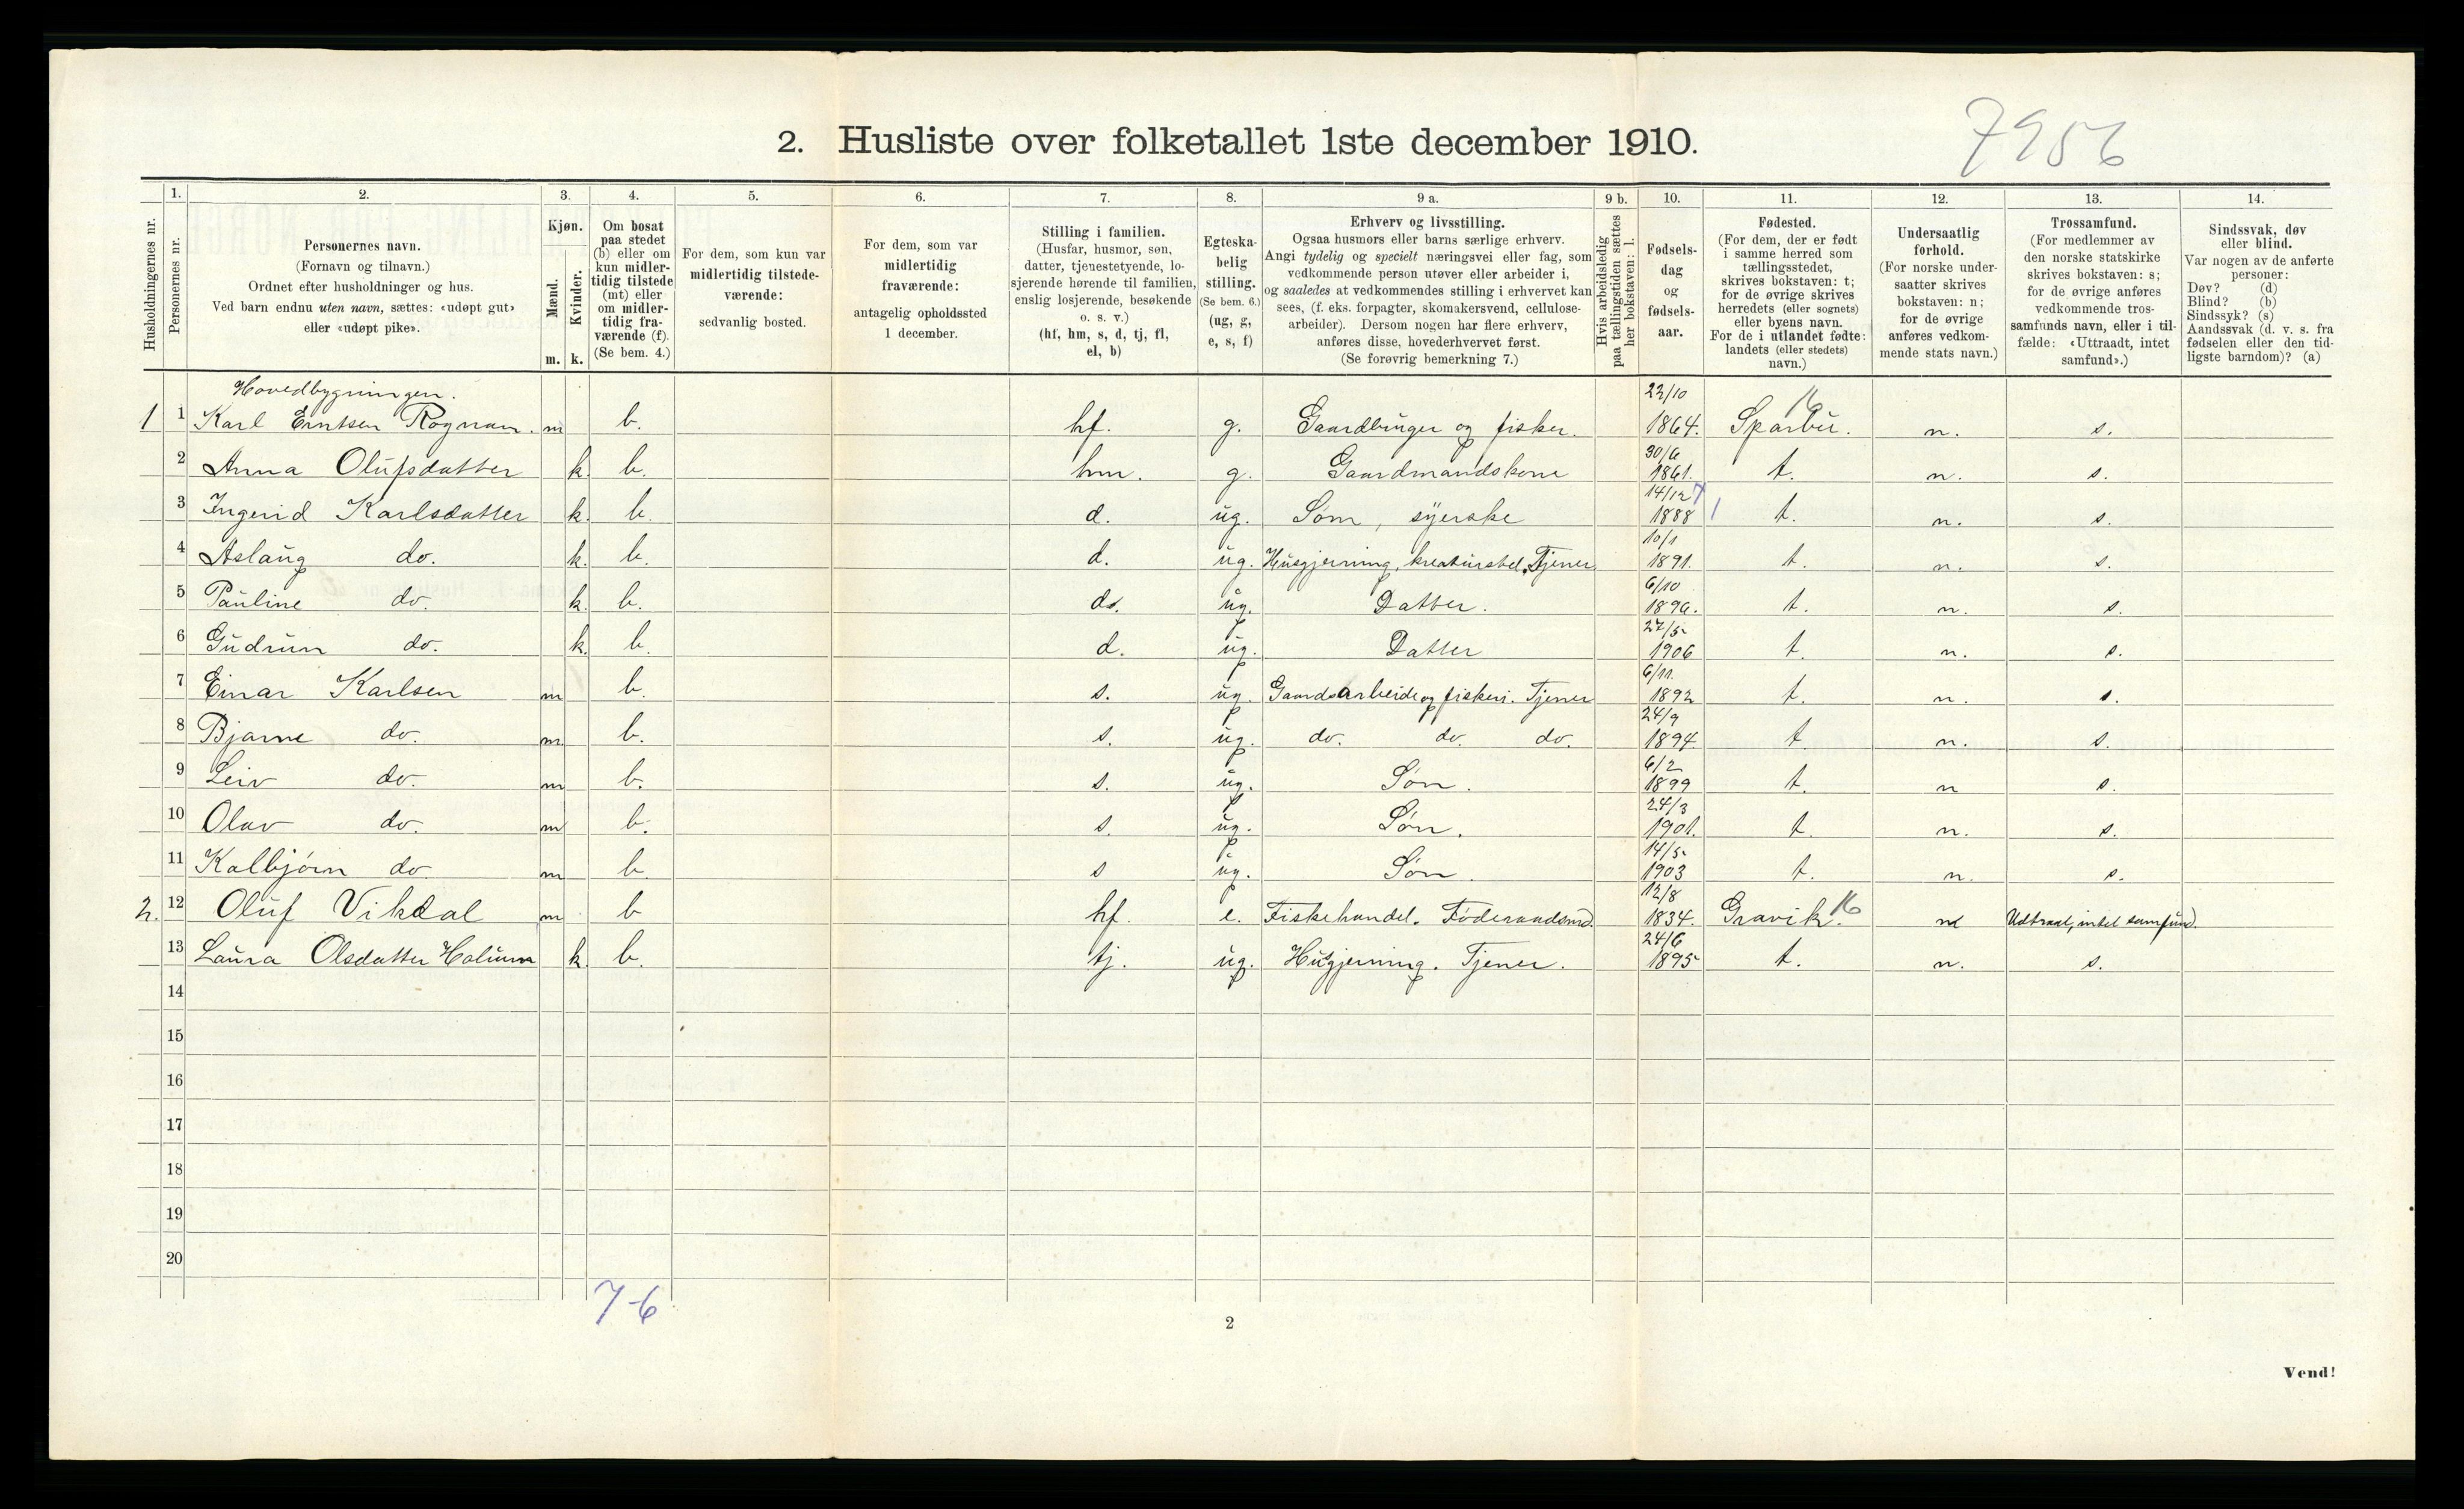 7956
2. Husliste over folketallet 1ste december 1910.
Husholdningernes nr.
1.
Personernes nr.
2.
Personernes navn.
(Fornavn og tilnavn.)
Ordnet efter husholdninger og hus.
Ved barn endnu uten navn, sættes: «udøpt gut»
eller «udøpt pike».
3.
Kjøn.
Mænd.
Kvinder.
m. k.
4.
Om bosat
paa stedet
(b) eller om
kun midler-
tidig tilstede
(mt) eller
om midler-
tidig fra-
værende (f).
(Se bem. 4.)
5.
For dem, som kun var
midlertidig tilstede-
værende:
sedvanlig bosted.
6.
For dem, som var
midlertidig
fraværende:
antagelig opholdssted
1 december.
7.
Stilling i familien.
(Husfar, husmor, søn,
datter, tjenestetyende, lo-
sjerende hørende til familien,
enslig losjerende, besøkende
o. s. v.)
(hf, hm, s, d, tj, fl,
el, b)
8.
Egteska-
belig
stilling.
(Se bem. 6.)
(ug, g,
e, s, f)
9 a.
Erhverv og livsstilling.
Ogsaa husmors eller barns særlige erhverv.
Angi tydelig og specielt næringsvei eller fag, som
vedkommende person utøver eller arbeider i,
og saaledes at vedkommendes stilling i erhvervet kan
sees, (f. eks. forpagter, skomakersvend, cellulose-
arbeider). Dersom nogen har flere erhverv,
anføres disse, hovederhvervet først.
(Se forøvrig bemerkning 7.)
9 b.
Hvis arbeidsledig
paa tællingstiden sættes
her bokstaven: l.
10.
Fødsels-
dag
og
fødsels-
aar.
11.
Fødested.
(For dem, der er født
i samme herred som
tællingsstedet,
skrives bokstaven: t;
for de øvrige skrives
herredets (eller sognets)
eller byens navn.
For de i utlandet fødte:
landets (eller stedets)
navn.)
12.
Undersaatlig
forhold.
(For norske under-
saatter skrives
bokstaven: n;
for de øvrige
anføres vedkom-
mende stats navn.)
13.
Trossamfund.
(For medlemmer av
den norske statskirke
skrives bokstaven: s;
for de øvrige anføres
vedkommende tros-
samfunds navn, eller i til-
fælde: «Uttraadt, intet
samfund».)
14.
Sindssvak, døv
eller blind.
Var nogen av de anførte
personer:
Døv? (d)
Blind? (b)
Sindssyk? (s)
Aandssvak (d. v. s. fra
fødselen eller den tid-
ligste barndom)? (a)
Hovedbygningen.
1 1 Karl Erntsen Rognan. m b. hf. g. Gaardbruger og fisker. 22/10 1864. Sparbu. 16 n. s.
2 Anna Olufsdatter k. b. hm. g. Gaardmandskone 30/6 1861. t. n. s.
3 Ingerid Karlsdatter k. b. d. ug. Søm, syerske 14/12 1888 t. n. s.
4 Aslaug do. k. b. d. ug. Husgjerning, kreaturstel. Tjener 10/1 1891. t. n. s.
5 Pauline do. k. b. d. ug. Datter. 6/10 1896. t. n. s.
6 Gudrun do. k. b. d. ug. Datter 27/5 1906 t. n. s.
7 Einar Karlsen m b. s. ug. Gaardsarbeide og fiskeri. Tjener 6/11. 1892 t. n. s.
8 Bjarne do. m. b. s. ug. do. do. do. 24/9 1894 t. n. s.
9 Leiv do. m b. s. ug. Søn. 6/2 1899 t. n s.
10 Olav do. m b. s. ug. Søn. 24/3 1901. t. n. s.
11 Kolbjörn do m b. s ug. Søn. 14/5 1903 t. n. s.
2. 12 Oluf Vikdal m b hf. e. Fiskehandel. Føderaadsmd. 12/8 1834. Gravik. 16 n Udtraat, intet samfund.
13 Laura Olsdatter Holium k. b. tj. ug. Husgjerning. Tjener. 24/6 1895 t. n. s.
14
15
16
17
18
19
20
7-6
2
Vend!